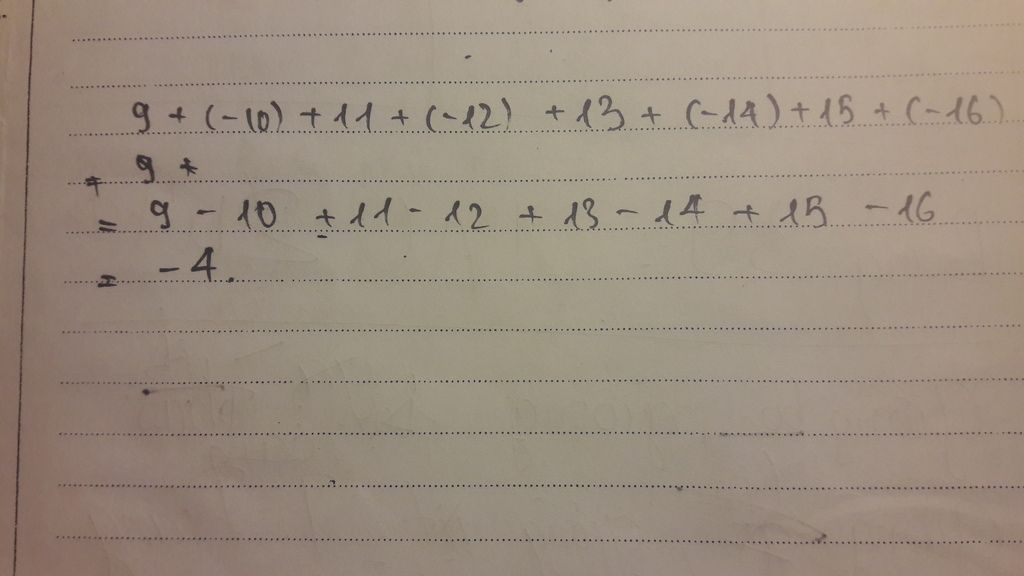 9 + (-10) + 11 + (-12) + 13 + (-14) + 15 + (-16)
= 9 +
= 9 - 10 + 11 - 12 + 13 - 14 + 15 - 16
= -4.